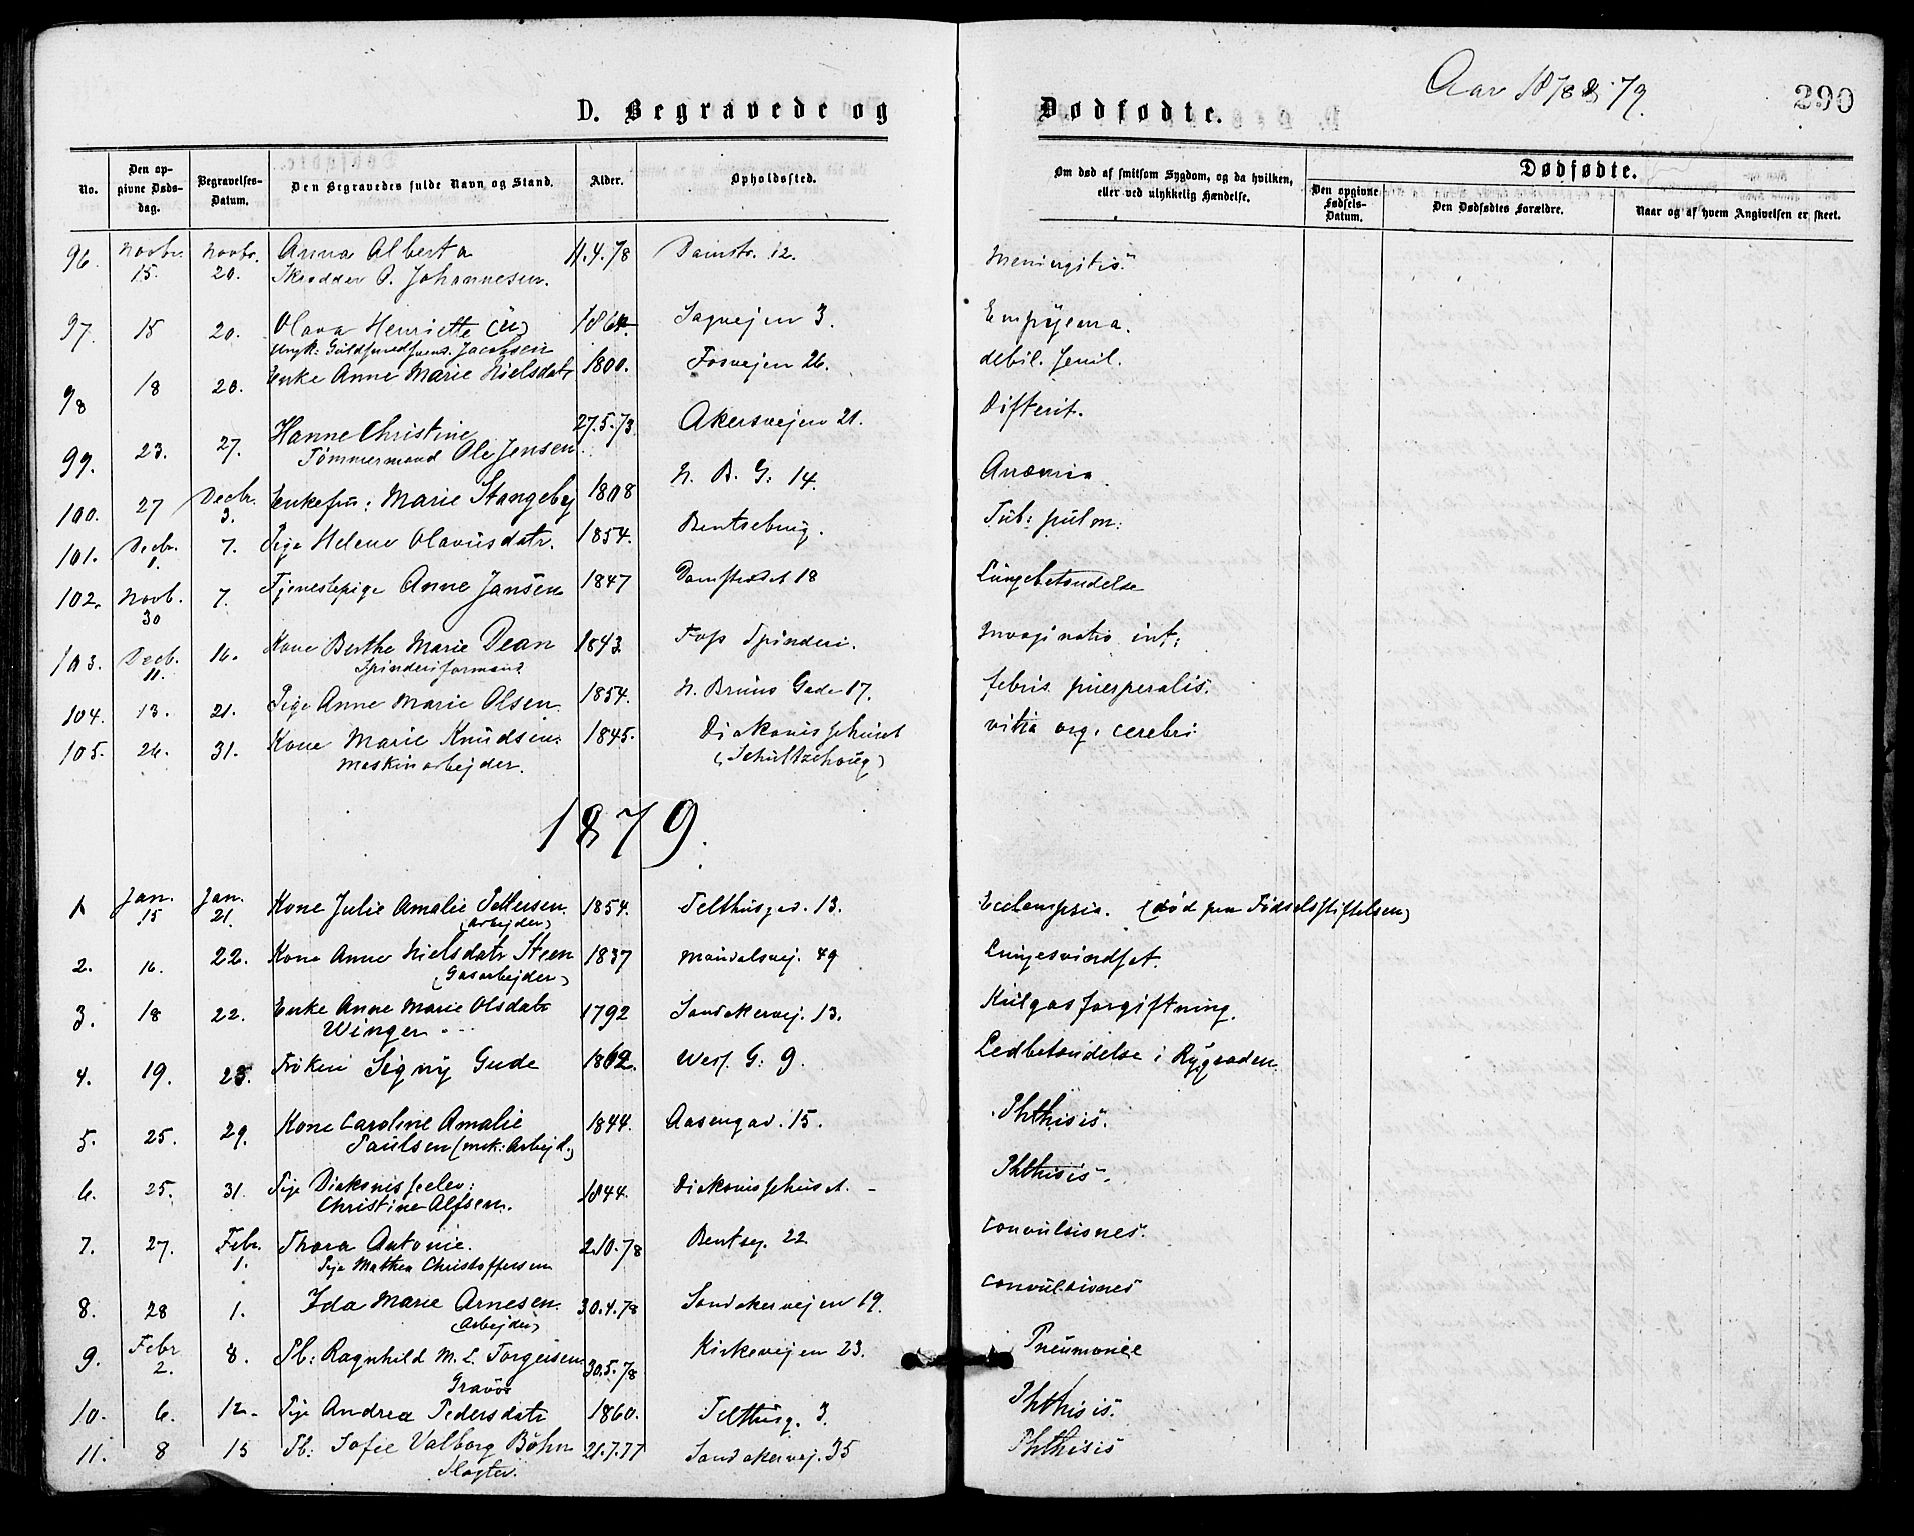 Aar 1878 & 79.
290
D. Begravede og Dødfødte.
No. Den opgivne Dødsdag. Begravelses-Datum. Den Begravedes fulde Navn og Stand. Alder. Opholdssted. Om død af smitsom Sygdom, og da hvilken, eller ved ulykkelig Hændelse. Dødfødte. Den opgivne Fødsels-Datum. Den Dødfødtes Forældre. Naar og af hvem Angivelsen er skeet.
96. Novbr. 15. Novbr. 20. Anna Alberta 11.4.78 Damstr. 12. Meningitis.
Skrædder P. Johannesen.
97. 15 20. Olava Henriette (u) Sagvejen 3. Empyema.
Guldsmedsvens. Jacobsen
98 18 20. Enke Anne Marie Nielsdatr 1800. Fosvejen 26. debil. senil.
99. 23. 27. Hanne Christine 27.5.73. Akersvejen 21. Difterit.
Tømmermand Ole Jensen
100. 27 Decbr. 3. Enkefru: Marie Stangeby 1808 N. B. G: 14. Anæmia.
101. Decbr. 1. 7. Pige Helene Olavusdatr. 1854. Bentsebrug. Tub: pulm:
102. Novb. 30 7. Tjenestepige Anne Jansen 1847 Damstrædet 18 Lungebetændelse
103. Decb. 11. 16. Kone Berthe Marie Dean 1843 Foss Spinderi. Invaginatio int:
Spinderiformand
104. 13. 21. Pige Anne Marie Olsen 1854. N. Bruns Gade 17. febris puerperalis.
105. 26. 31. Kone Marie Knudsen: 1845. Diakonissehuset vitia org. cerebri
Maskinarbejder. (Schultzehoug)
1879.
1 Jan. 15 Jan. 21. Kone Julie Amalie Pettersen. 1854. Telthusgad. 13. Eclampsia. (død paa Fødselsstiftelsen)
(Arbejder)
2. 16. 22. Kone Anne Nielsdatr Steen 1837 Maridalsvej. 49 Lungesvindsot.
(Gasarbejder)
3. 18 22. Enke Anne Marie Olsdatr 1792 Sandakervej. 13. Kulgasforgiftning.
Winger
4. 19. 25. Frøken Signy Gude 1862. Wess. G: 9. Ledbetændelse i Rygraden.
5. 25. 29. Kone Caroline Amalie 1844. Aasengad. 15. Phthisis.
Paulsen (mk: Arbejd.)
6. 25. 31. Pige Diakonisseelev: 1844. Diakonissehuset. Phthisis.
Christine Alfsen.
7. 27. Febr. 1. Thora Antonie. 2.10.78 Bentseg. 22. convulsiones.
Pige Mathea Christoffersen
8. 28 1. Ida Marie Arnesen. 30.4.78 Sandakervejen 19. convulsiones
(Arbejder)
9. Febr 2. 8. Pb: Ragnhild M. L. Torgersen 30.5.78 Kirkevejen 23. Pneumonie
Gravør
10. 6. 12. Pige Andrea Pedersdatr 1860. Telthusg. 3. Phthisis.
11. 8 15 Pb: Sofie Valborg Bøhn 21.7.77 Sandakervej. 35 Phthisis
Slagter.